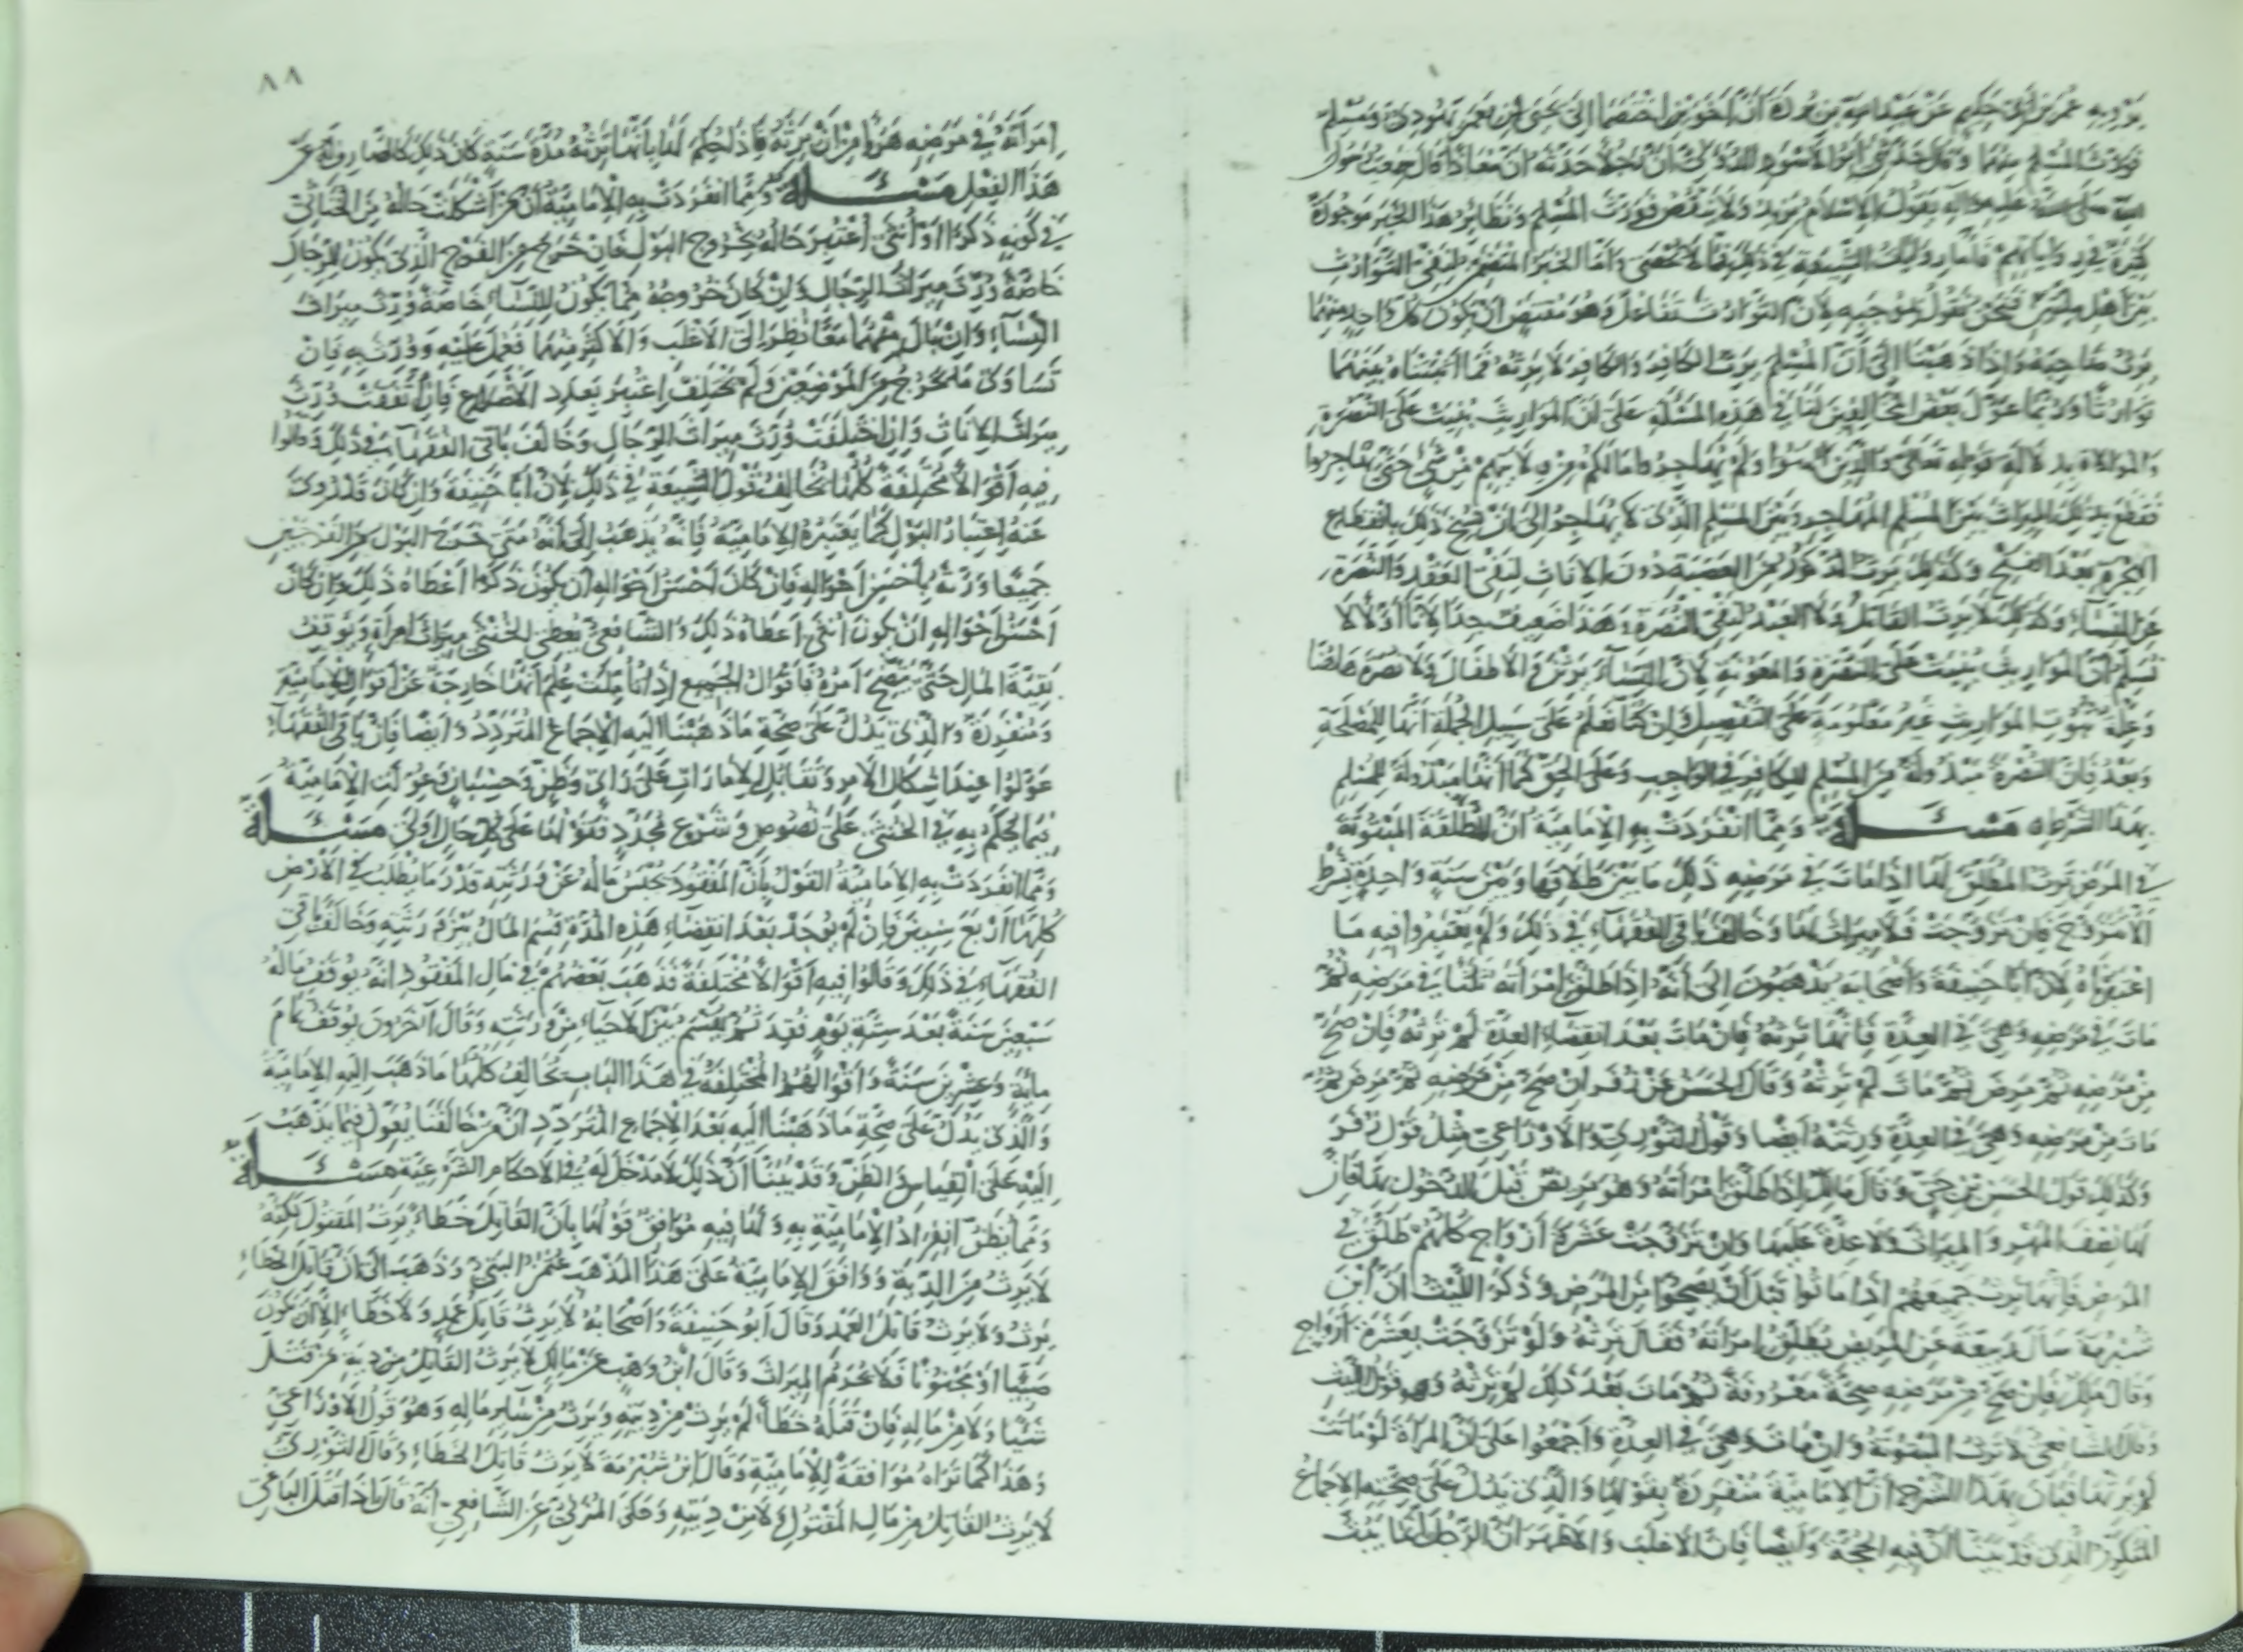 يرويه عمرو بن أبي حكيم عن عبد الله بن بريدة أن أخوين اختصما إلى يحيى بن يعمر يهودي ومسلم
فورث المسلم منهما وقال حدثني أبو الأسود الدؤلي أن رجلا حدثه أن معاذا قال سمعت رسول
الله صلى الله عليه وآله يقول الإسلام يزيد ولا ينقص فورث المسلم ونظائر هذا الخبر موجودة
كثيرة في رواياتهم فأما روايات الشيعة في ذلك فلا تحصى وأما الخبر المتضمن لنفي التوارث
بين أهل ملتين فنحن نقول بموجبه لأن التوارث تفاعل وهو مقتض أن يكون كل واحد منهما
يرث صاحبه وإذا ذهبنا إلى أن المسلم يرث الكافر والكافر لا يرثه فما أثبتناه بينهما
توارثا وربما عول بعض المخالفين لنا في هذه المسئلة على أن المواريث بنيت على النصرة
والموالاة بدلالة قوله تعالى والذين آمنوا ولم يهاجروا ما لكم من ولايتهم من شئ حتى يهاجروا
فقطع بذلك الميراث بين المسلم المهاجر وبين المسلم الذي لا يهاجر إلى أن نسخ ذلك بانقطاع
الهجرة بعد الفتح وكذلك يرث الذكور من العصبة دون الإناث لنفي العقل والنصرة
عن النساء وكذلك لا يرث القاتل ولا العبد لنفي النصرة وهذا ضعيف جدا لأنا أولا لا
نسلم أن المواريث بنيت على النصرة والمعونة لأن النساء يرثن والأطفال ولا نصرة هاهنا
وعلة ثبوت المواريث غير معلومة على التفصيل وإن كنا نعلم على سبيل الجملة أنها للمصلحة
وبعد فإن النصرة مبذولة من المسلم للكافر في الواجب وعلى الحق كما أنها مبذولة للمسلم
بهذا الشرط مسئلة ومما انفردت به الإمامية أن المطلقة المبتوتة
في المرض ترث المطلق لها إذا مات في مرضه ذلك ما بين طلاقها وبين سنة واحدة بشرط
ألا تتزوج فإن تزوجت فلا ميراث لها وخالف باقي الفقهاء في ذلك ولم يعتبروا فيه ما
اعتبرناه لأن أبا حنيفة وأصحابه يذهبون إلى أنه إذا طلق امرأته ثلثا في مرضه ثم
مات في مرضه وهي في العدة فإنها ترثه فإن مات بعد انقضاء العدة لم ترثه فإن صح
من مرضه ثم مرض ثم مات لم ترثه وقال الحسن عن زفر إن صح من مرضه ثم مرض ثم
مات من مرضه وهي في العدة ورثته أيضا وقول الثوري والأوزاعي مثل قول زفر
وكذلك قول الحسن بن حي وقال مالك إذا طلق امرأته وهو مريض قبل الدخول بها فإن
لها نصف المهر والميراث ولا عدة عليها وإن تزوجت عشرة أزواج كلهم طلق في
المرض فإنها ترث جميعهم إذا ماتوا قبل أن يصحوا من المرض وذكر الليث أن ابن
شبرمة سأل ربيعة عن المريض يطلق امرأته فقال ترثه ولو تزوجت بعشرة أزواج
وقال مالك فإن صح من مرضه صحة معروفة ثم مات بعد ذلك لم ترثه وهو قول الليث
وقال الشافعي لا ترث المبتوتة وإن مات وهي في العدة وأجمعوا على أن المرأة لو ماتت
لم يرثها فبان بهذا الشرح أن الإمامية منفردة بقولها والذي يدل على صحته الإجماع
المتكرر الذي قد بينا أن فيه الحجة وأيضا فإن الأغلب والأظهر أن الرجل إنما يبت
٨٨
امرأته في مرضه هربا من أن ترثه فإذا حكم لها بأنها ترثه مدة سنة كان ذلك كالصارف له عن
هذا الفعل مسئلة ومما انفردت به الإمامية أن من أشكلت حاله من الخناثى
في كونه ذكرا أو أنثى اعتبر حاله بخروج البول فإن خرج من الفرج الذي يكون للرجال
خاصة ورث ميراث الرجال وإن كان خروجه مما يكون للنساء خاصة ورث ميراث
النساء وإن بال منهما معا نظر إلى الأغلب والأكثر منهما فعمل عليه وورث به فإن
تساوى ما يخرج من الموضعين ولم يختلف اعتبر بعدد الأضلاع فإن اتفقت ورث
ميراث الإناث وإن اختلفت ورث ميراث الرجال وخالف باقي الفقهاء في ذلك وقالوا
فيه أقوالا مختلفة كلها تخالف قول الشيعة في ذلك لأن أبا حنيفة وإن كان قد روي
عنه اعتبار البول كما يعتبره الإمامية فإنه يذهب إلى أنه متى خرج البول من الفرجين
جميعا ورثه بأحسن أحواله فإن كان أحسن أحواله أن يكون ذكرا أعطاه ذلك وإن كان
أحسن أحواله أن يكون أنثى أعطاه ذلك والشافعي يعطي الخنثى ميراث امرأة ويوقف
بقية المال حتى يتضح أمره فأقوال الجميع إذا تأملت علم أنها خارجة عن أقوال الإمامية
ومنفردة والذي يدل على صحة ما ذهبنا إليه الإجماع المتردد وأيضا فإن باقي الفقهاء
عولوا عند إشكال الأمر وتقابل الأمارات على رأي وظن وحسبان وعولت الإمامية
فيما يحكم به في الخنثى على نصوص وشرع محدد فقولها على كل حال أولى مسئلة
ومما انفردت به الإمامية القول بأن المفقود يحبس ماله عن ورثته قدر ما يطلب في الأرض
كلها أربع سنين فإن لم يوجد بعد انقضاء هذه المدة قسم المال بين ورثته وخالف باقي
الفقهاء في ذلك وقالوا فيه أقوالا مختلفة فذهب بعضهم في مال المفقود أنه يوقف ماله
سبعين سنة بعد سنة يوم فقد ثم يقسم بين الأحياء من ورثته وقال آخرون يوقف تمام
مائة وعشرين سنة وأقوالهم المختلفة في هذا الباب تخالف كلها ما ذهب إليه الإمامية
والذي يدل على صحة ما ذهبنا إليه بعد الإجماع المتردد أن من خالفنا يعول فيما يذهب
إليه على القياس والظن وقد بينا أن ذلك لا مدخل له في الأحكام الشرعية مسئلة
ومما يظن انفراد الإمامية به ولها فيه موافق قولها بأن القاتل خطاء يرث المقتول لكنه
لا يرث من الدية ووافق الإمامية على هذا المذهب عثمان البتي وذهب إلى أن قاتل الخطاء
يرث ولا يرث قاتل العمد وقال أبو حنيفة وأصحابه لا يرث قاتل عمد ولا خطاء إلا أن يكون
صبيا أو مجنونا فلا يحرم الميراث وقال ابن وهب عن مالك لا يرث القاتل من دية من قتل
شيئا ولا من ماله فإن قتله خطأ لم يرث من ديته ويرث من سائر ماله وهو قول الأوزاعي
وهذا كما تراه موافقة للإمامية وقال ابن شبرمة لا يرث قاتل الخطاء وقال الثوري
لا يرث القاتل من مال المقتول ولا من ديته وحكى المزني عن الشافعي أنه قال إذا قتل الباغي